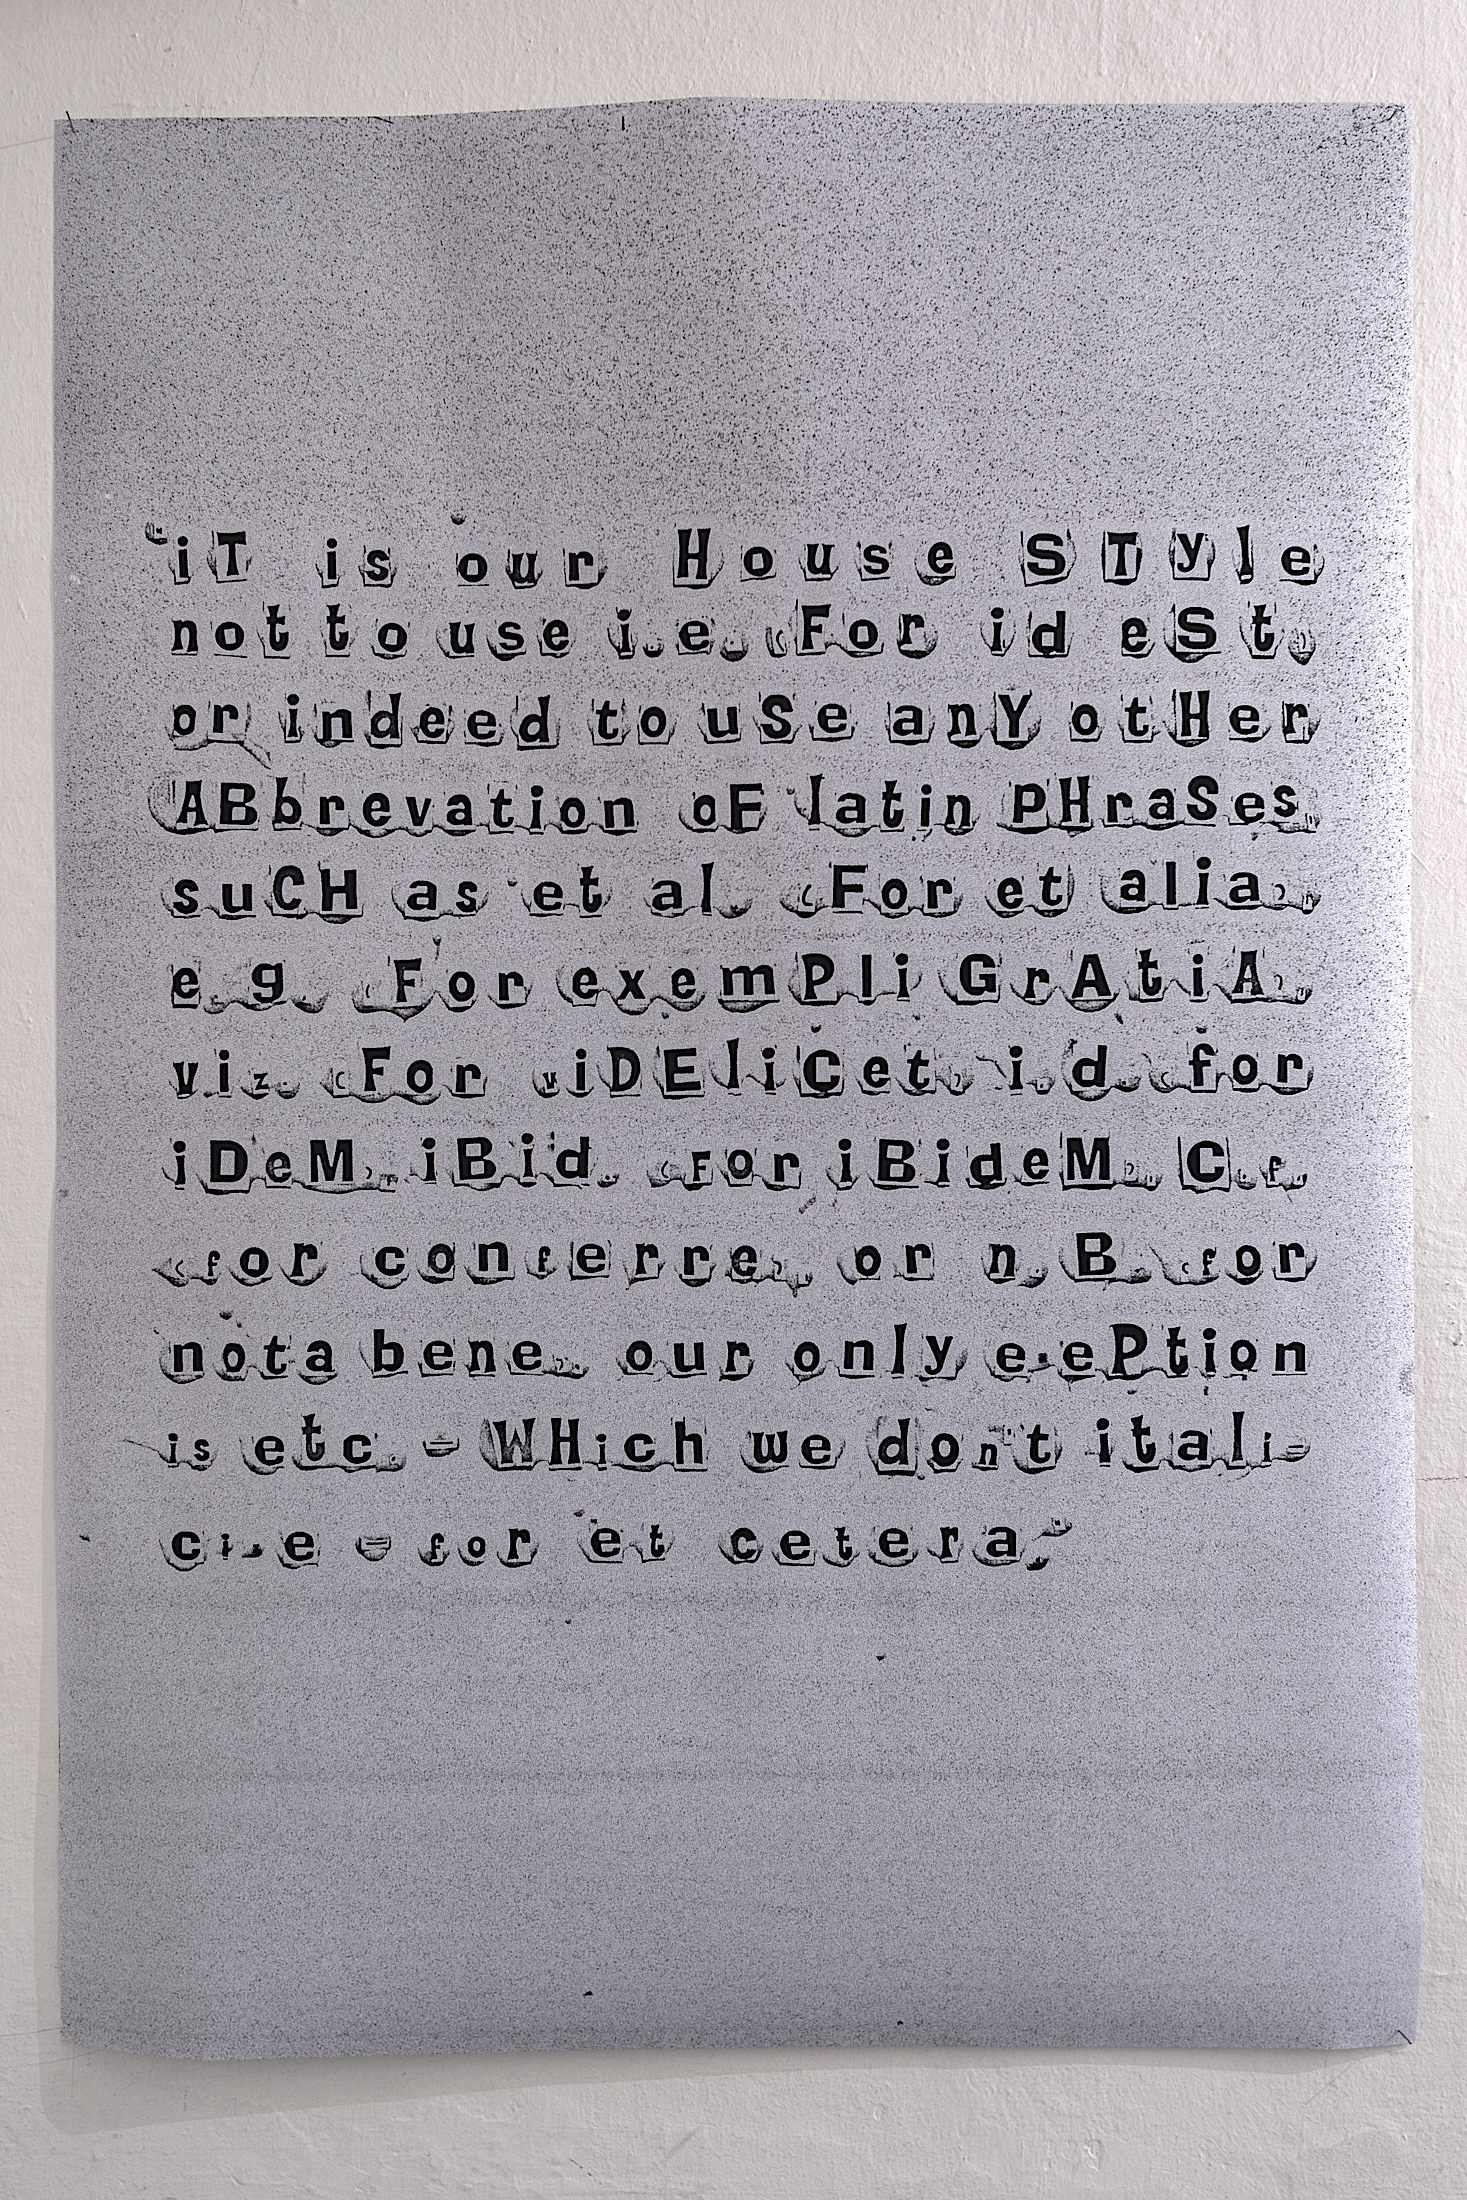 “iT is our House STyle
not to use i.e. (For id eSt)
or indeed to uSe anY otHer
ABbrevation oF latin PHraSes,
suCH as et al. (For et alia),
e.g. (For exemPli GrAtiA),
viz. (For viDEliCet), i.d. (for
iDeM), iBid. (For iBideM), C.f.
(for conferre), or n.B. (for
nota bene). our only e·ePtion
is etc. – WHich we don't itali-
ci·e – for et cetera.”